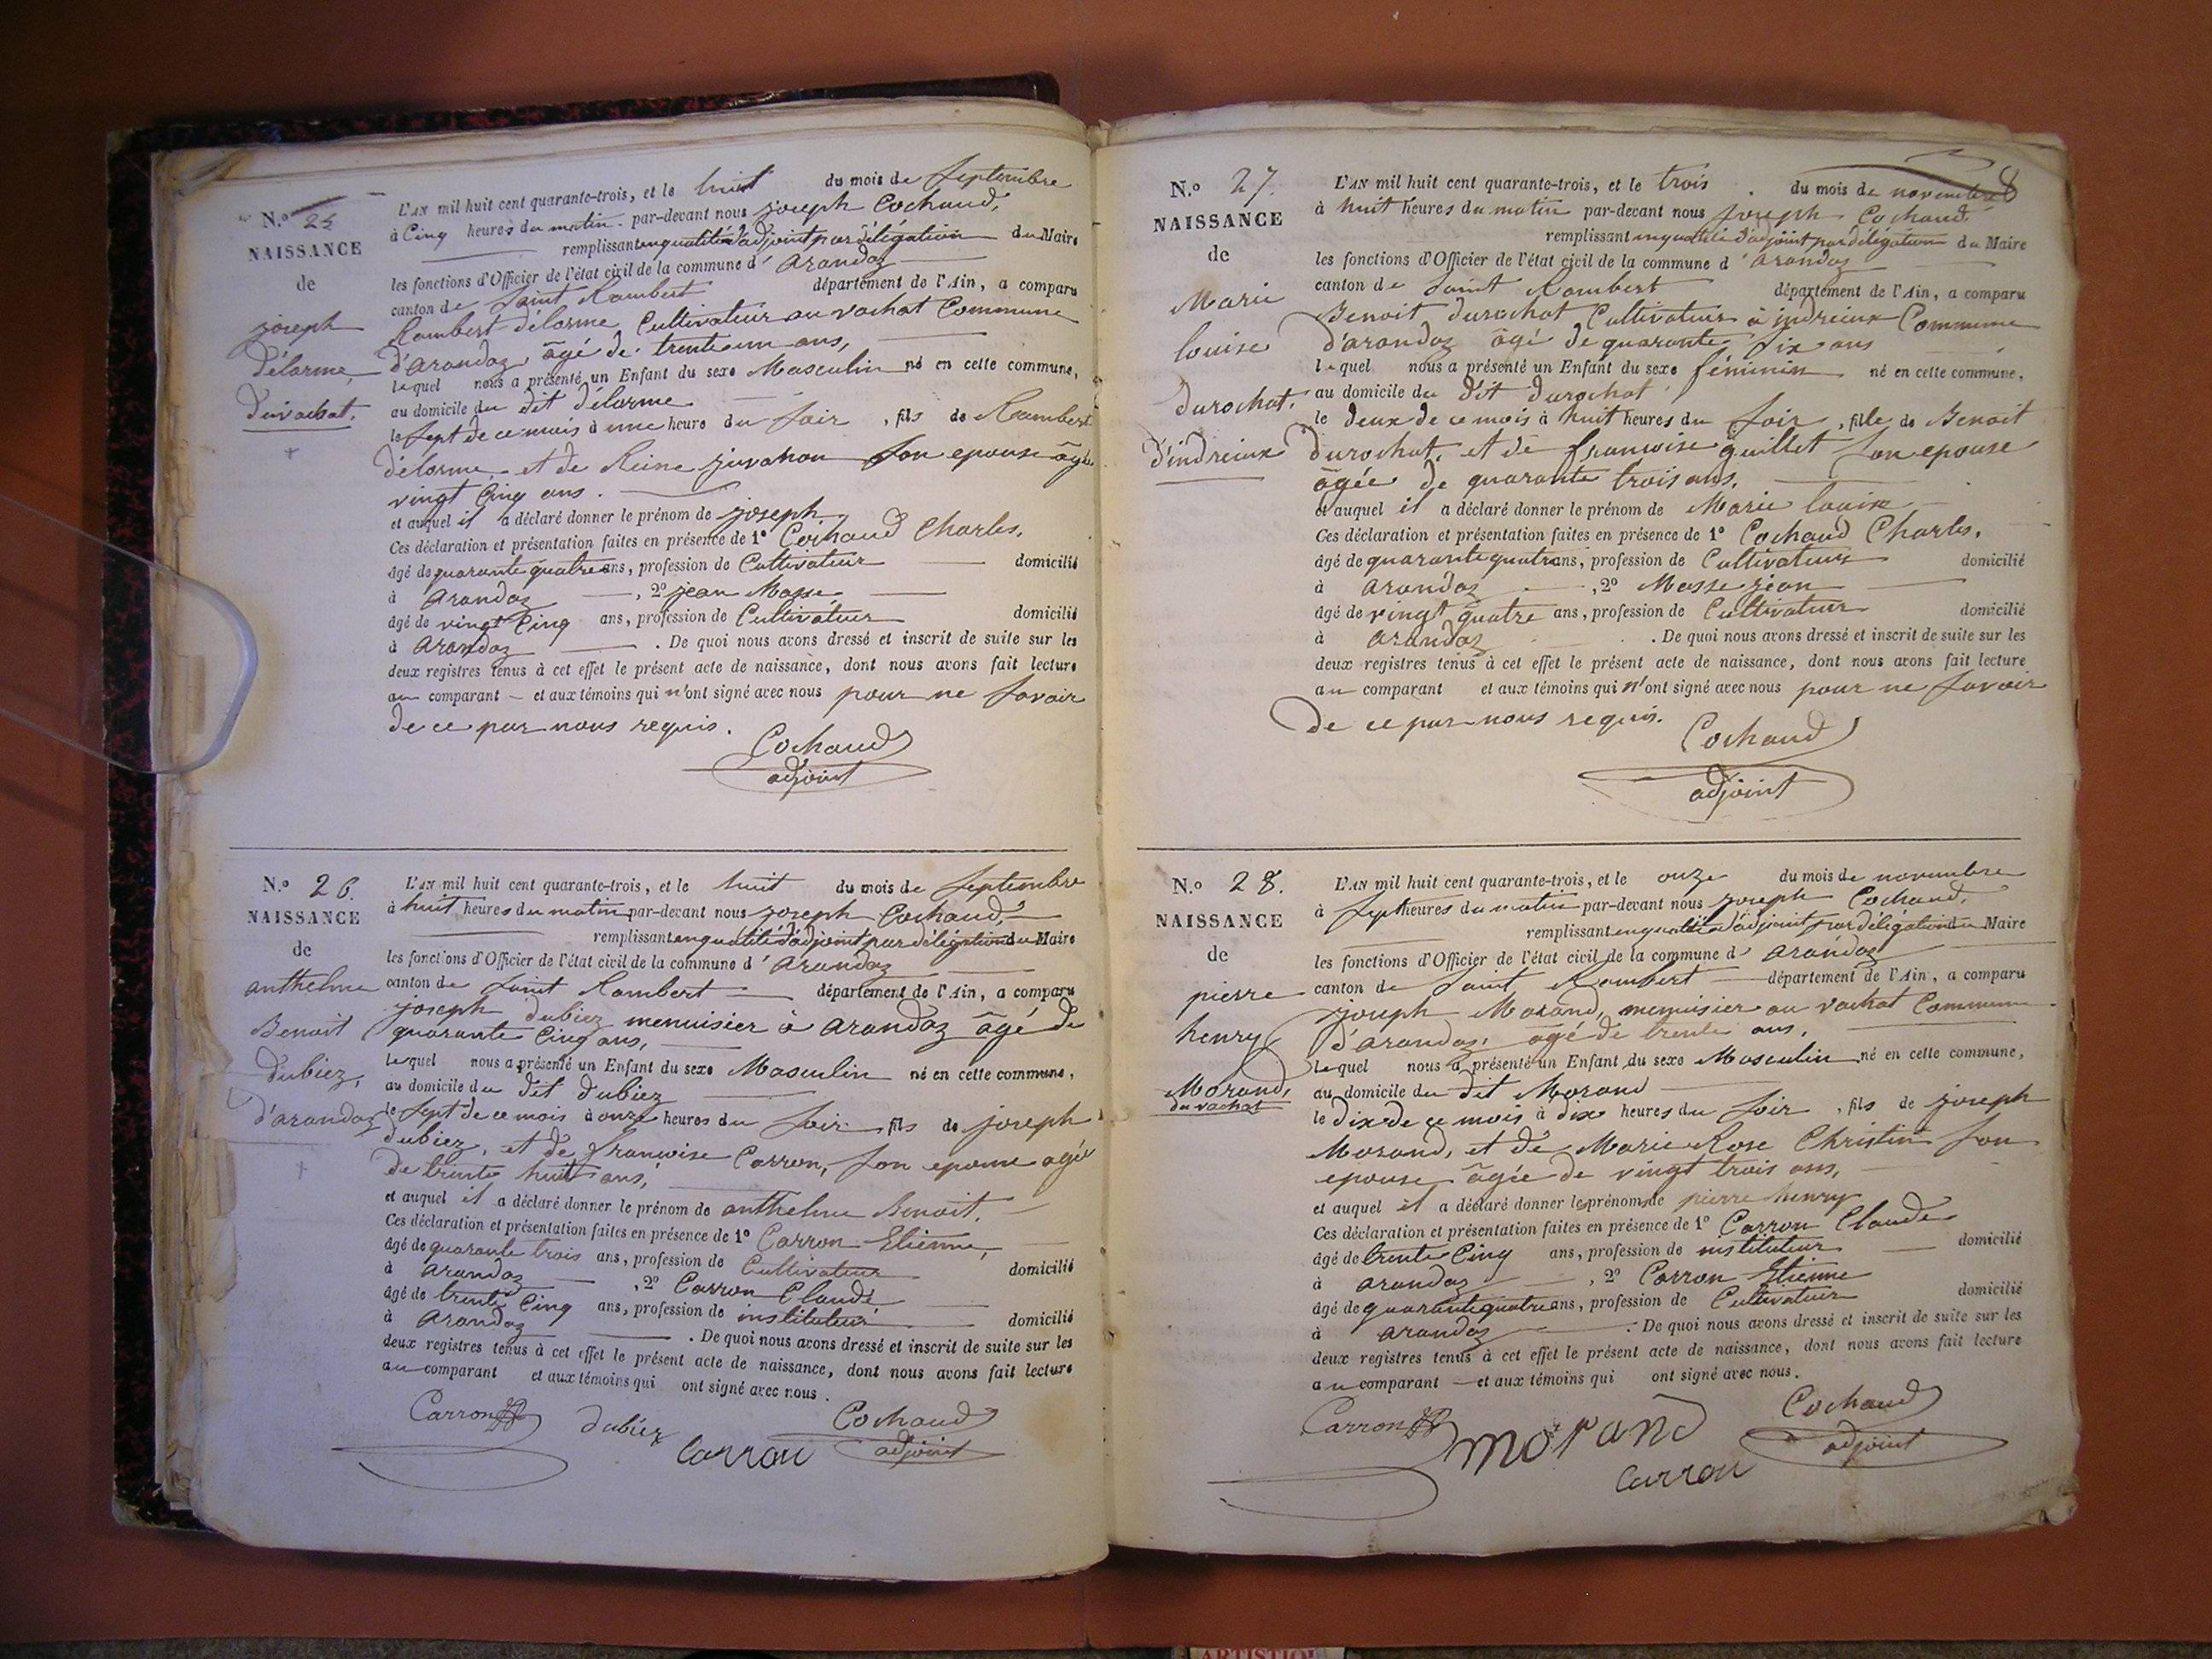 N.o 25
NAISSANCE
de
joseph
délorme,
du vachat.
L'AN mil huit cent quarante-trois, et le huit du mois de Septembre
à Cinq heures du matin par-devant nous joseph Cochaud,
remplissant en qualité d'adjoint par délégation du Maire
les fonctions d'Officier de l'état civil de la commune d' arandaz
canton de Saint Rambert département de l'Ain, a comparu
Rambert délorme, Cultivateur au vachat Commune
d'arandaz, âgé de trente un ans,
lequel nous a présenté un Enfant du sexe Masculin né en cette commune,
au domicile du dit délorme
le Sept de ce mois à une heure du Soir, fils de Rambert
délorme, et de Reine juvanon Son epouse âgée
vingt Cinq ans.
et auquel il a déclaré donner le prénom de joseph,
Ces déclaration et présentation faites en présence de 1° Cochaud Charles,
âgé de quarante quatre ans, profession de Cultivateur domicilié
à arandaz, 2° jean Masse
âgé de vingt Cinq ans, profession de Cultivateur domicilié
à arandaz. De quoi nous avons dressé et inscrit de suite sur les
deux registres tenus à cet effet le présent acte de naissance, dont nous avons fait lecture
au comparant et aux témoins qui n'ont signé avec nous pour ne Savoir
de ce par nous requis.
Cochaud
adjoint
N.o 26.
NAISSANCE
de
anthelme
Benoit
dubiez,
d'arandaz
L'AN mil huit cent quarante-trois, et le huit du mois de Septembre
à huit heures du matin par-devant nous joseph Cochaud,
remplissant en qualité d'adjoint par délégation du Maire
les fonctions d'Officier de l'état civil de la commune d' arandaz
canton de Saint Rambert département de l'Ain, a comparu
joseph dubiez menuisier à arandaz âgé de
quarante Cinq ans,
lequel nous a présenté un Enfant du sexe Masculin né en cette commune,
au domicile du dit dubiez
le Sept de ce mois à onze heures du Soir, fils de joseph
dubiez, et de francoise Carron, Son epouse agée
de trente huit ans,
et auquel il a déclaré donner le prénom de anthelme Benoit,
Ces déclaration et présentation faites en présence de 1° Carron Etienne,
âgé de quarante trois ans, profession de Cultivateur domicilié
à arandaz, 2° Carron Claude
âgé de trente Cinq ans, profession de instituteur domicilié
à arandaz. De quoi nous avons dressé et inscrit de suite sur les
deux registres tenus à cet effet le présent acte de naissance, dont nous avons fait lecture
au comparant et aux témoins qui ont signé avec nous.
Carron dubiez Carron Cochaud
adjoint
N.o 27.
NAISSANCE
de
Marie
louise
durochat,
d'indrieux
L'AN mil huit cent quarante-trois, et le trois du mois de novembre
à huit heures du matin par-devant nous joseph Cochaud,
remplissant en qualité d'adjoint par délégation du Maire
les fonctions d'Officier de l'état civil de la commune d' arandaz
canton de Saint Rambert département de l'Ain, a comparu
Benoit durochat Cultivateur à indrieux Commune
d'arandaz âgé de quarante Six ans
lequel nous a présenté un Enfant du sexe féminin né en cette commune,
au domicile du dit durochat
le deux de ce mois à huit heures du Soir, fille de Benoit
durochat, et de francoise guillet Son epouse
âgée de quarante trois ans,
et auquel il a déclaré donner le prénom de Marie louise
Ces déclaration et présentation faites en présence de 1° Cochaud Charles,
âgé de quarante quatre ans, profession de Cultivateur domicilié
à arandaz, 2° Masse jean
âgé de vingt quatre ans, profession de Cultivateur domicilié
à arandaz. De quoi nous avons dressé et inscrit de suite sur les
deux registres tenus à cet effet le présent acte de naissance, dont nous avons fait lecture
au comparant et aux témoins qui n'ont signé avec nous pour ne Savoir
de ce par nous requis.
Cochaud
adjoint
N.o 28.
NAISSANCE
de
pierre
henry
Morand,
du vachat
L'AN mil huit cent quarante-trois, et le onze du mois de novembre
à Sept heures du matin par-devant nous joseph Cochaud,
remplissant en qualité d'adjoint par délégation du Maire
les fonctions d'Officier de l'état civil de la commune d' arandaz
canton de Saint Rambert département de l'Ain, a comparu
joseph Morand, menuisier au vachat Commune
d'arandaz, agé de trente ans,
lequel nous a présenté un Enfant du sexe Masculin né en cette commune,
au domicile du dit Morand
le dix de ce mois à dix heures du Soir, fils de joseph
Morand, et de Marie Rose Christin Son
epouse âgée de vingt trois ans,
et auquel il a déclaré donner les prénoms de pierre henry
Ces déclaration et présentation faites en présence de 1° Carron Claude
âgé de trente Cinq ans, profession de instituteur domicilié
à arandaz, 2° Carron Etienne
âgé de quarante quatre ans, profession de Cultivateur domicilié
à arandaz. De quoi nous avons dressé et inscrit de suite sur les
deux registres tenus à cet effet le présent acte de naissance, dont nous avons fait lecture
au comparant et aux témoins qui ont signé avec nous.
Carron morand Carron Cochaud
adjoint